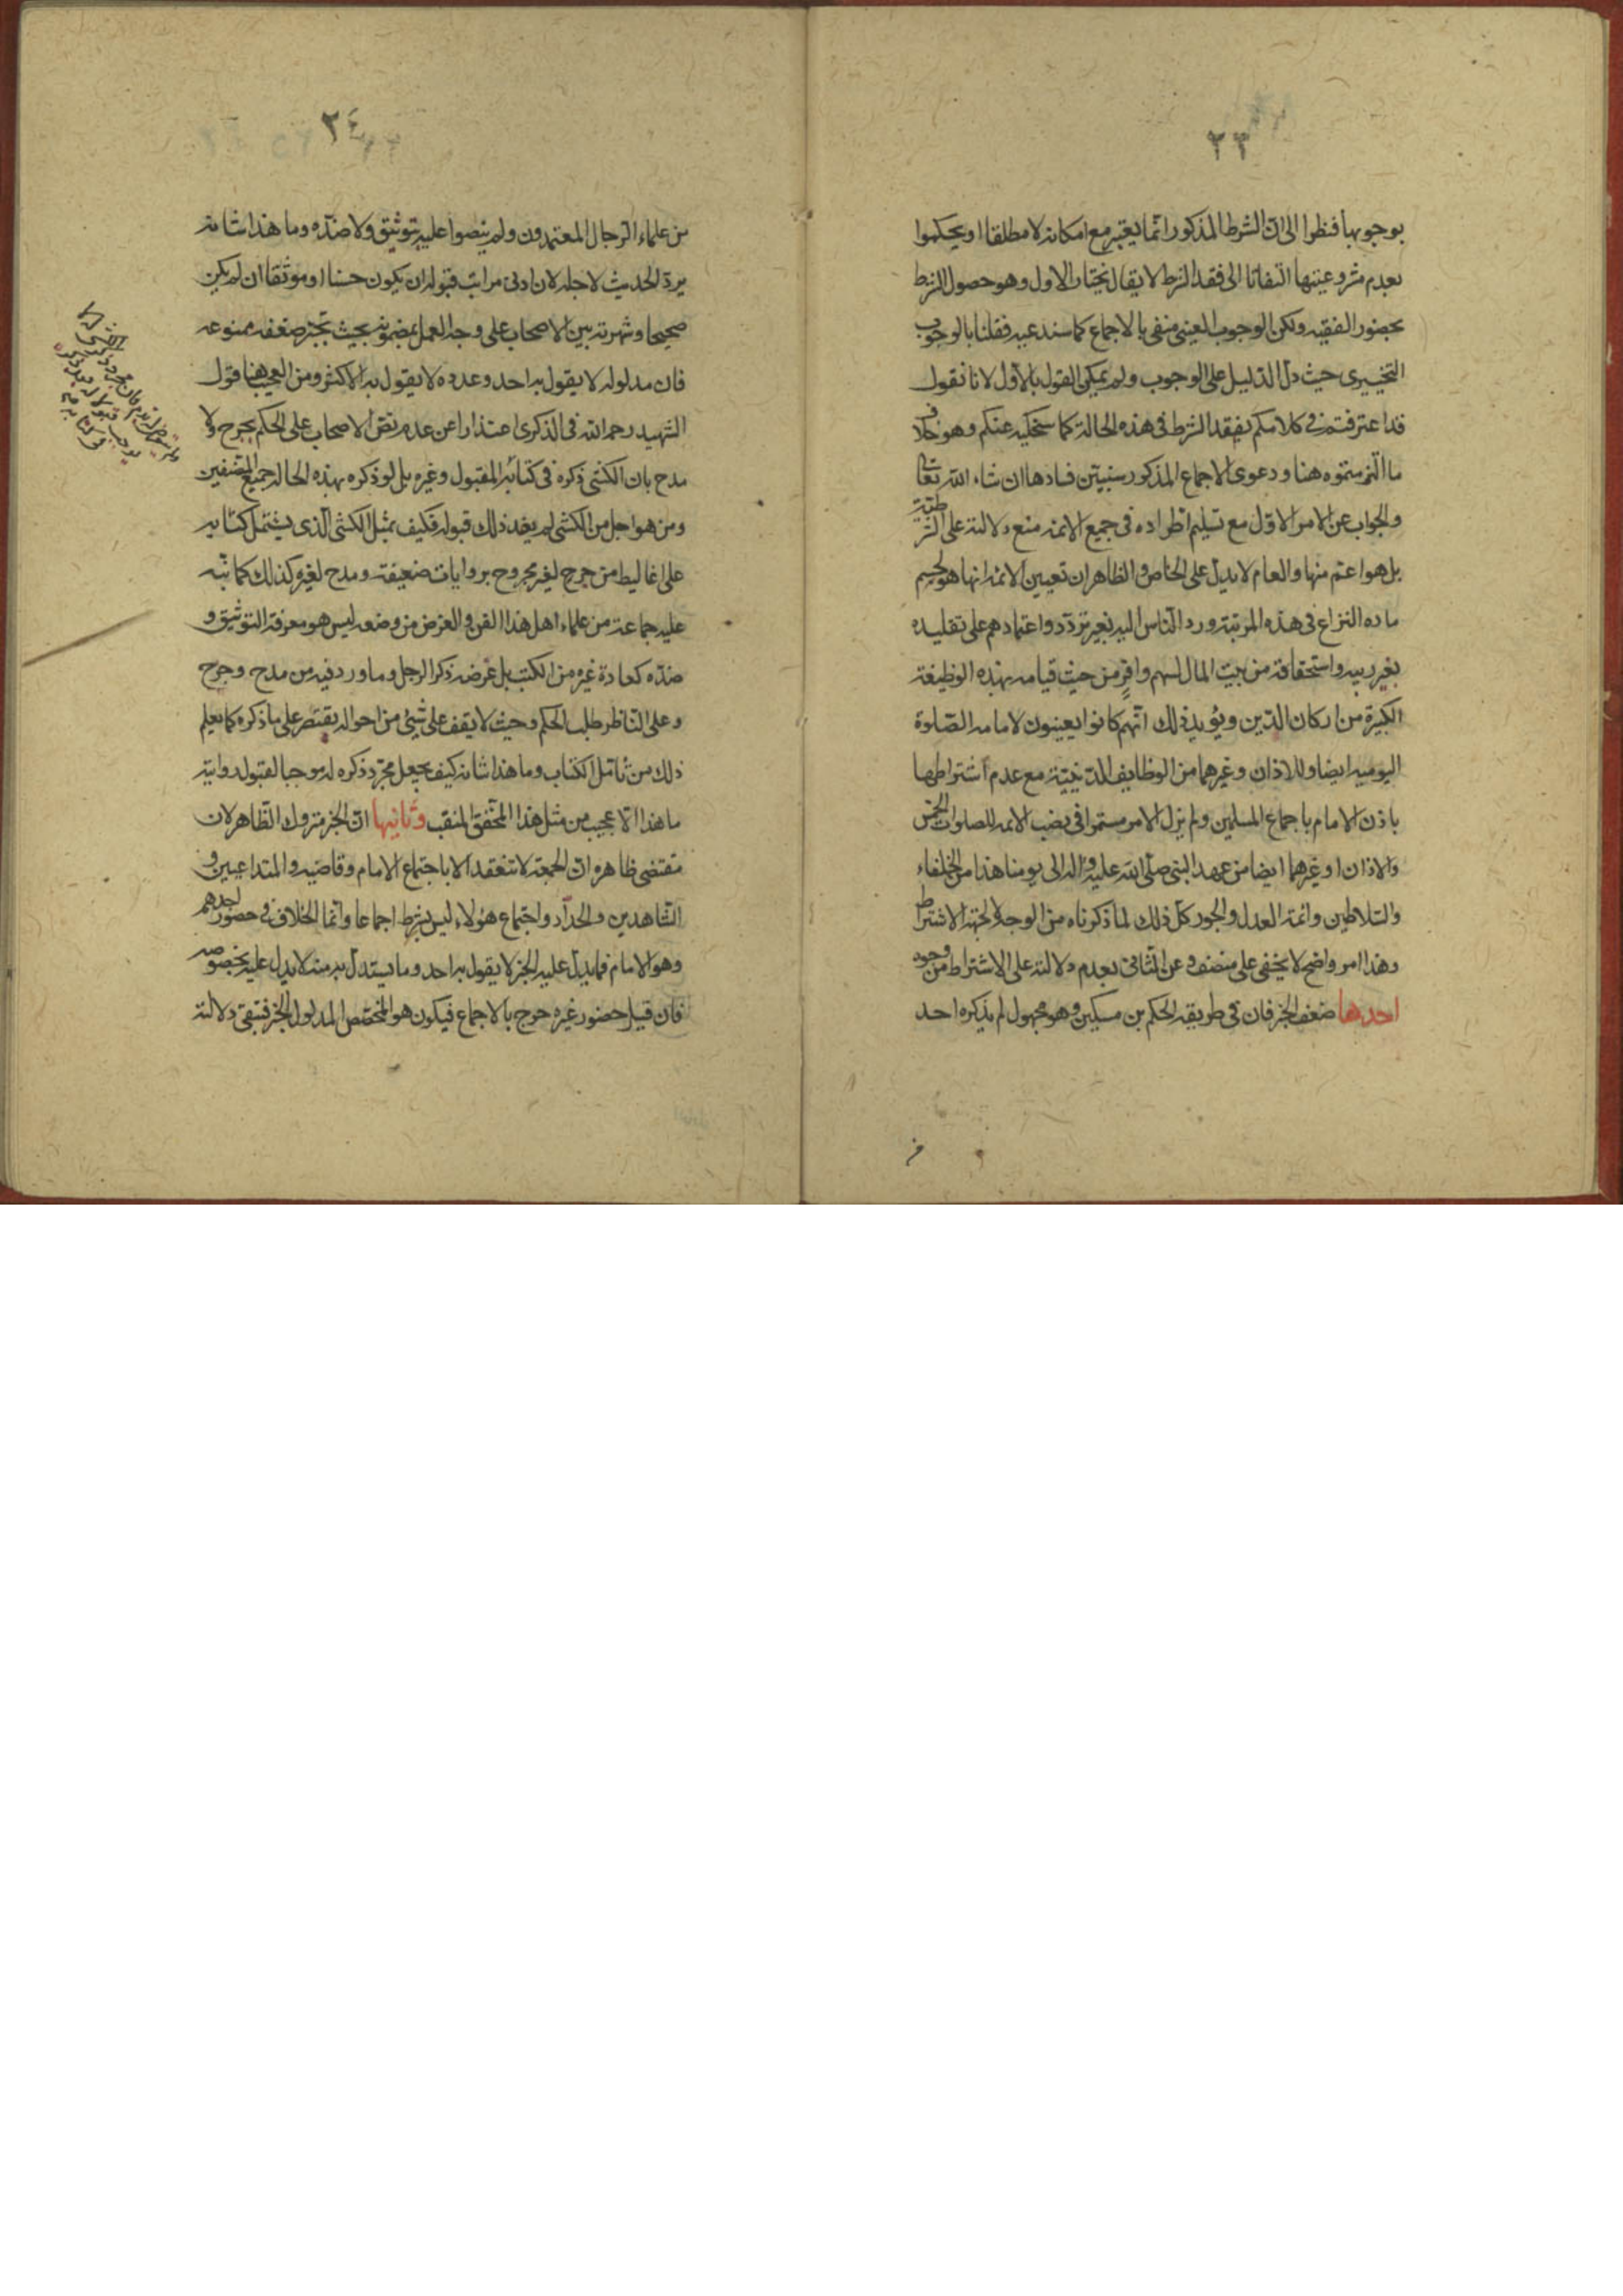 ٢٣
بوجوبها فنظرا الى ان الشرط المذكور انما يعتبر مع امكانه لا مطلقا او يحكموا
بعدم مشروعيتها التفاتا الى فقد الشرط لا يقال نختار الاول وهو حصول الشرط
بحضور الفقيه ولكن الوجوب العينى منفى بالاجماع كما سندعيه فقلنا بالوجوب
التخييرى حيث دل الدليل على الوجوب ولم يمكن القول بالاول لانا نقول
قد اعترفتم فى كلامكم بفقد الشرط فى هذه الحالة كما سنحكيه عنكم وهو خلاف
ما التزمتموه هنا ودعوى الاجماع المذكور سنبين فسادها ان شاء الله تعالى
والجواب عن الامر الاول مع تسليم اطراده فى جميع الائمه منع دلالته على الشرطية
بل هو اعم منها والعام لا يدل على الخاص والظاهر ان تعيين الائمه انها هو لحسم
ماده النزاع فى هذه المرتبة ورد الناس اليه بغير تردد واعتمادهم على تقليده
بغير ريبه واستحقاقه من بيت المال لسهم وافر من حيث قيامه بهذه الوظيفة
الكبيرة من اركان الدين ويؤيد ذلك انهم كانوا يعينون لامامه الصلوة
اليوميه ايضا وللاذان وغيرهما من الوظايف الدينية مع عدم اشتراطها
باذن الامام باجماع المسلمين ولم يزل الامر مستمرا فى نصب الائمه للصلوات الخمس
والاذان او غيرهما ايضا من عهد النبى صلى الله عليه واله الى يومنا هذا من الخلفاء
والسلاطين وائمة العدل والجور كل ذلك لما ذكرناه من الوجه لا لجهة الاشتراط
وهذا امر واضح لا يخفى على منصف وعن الثانى بعدم دلالته على الاشتراط من وجوه
احدها ضعف الخبر فان فى طريقه الحكم بن مسكين وهو مجهول لم يذكره احد
٢٤
من علماء الرجال المعتمدون ولم ينصوا عليه بتوثيق ولا ضده وما هذا شانه
يرد الحديث لاجله لان ادنى مراتب قبوله ان يكون حسنا او موثقا ان لم يكن
صحيحا وشهرته بين الاصحاب على وجه العمل بمضمونه بحيث تجبر ضعفه ممنوعه
فان مدلوله لا يقول به احد وعدده لا يقول به الاكثر ومن العجيب هنا قول
الشهيد رحمه الله فى الذكرى اعتذارا عن عدم نص الاصحاب على الحكم بجرح ولا
مدح بان الكشى ذكره فى كتابه المقبول وغيره بل لو ذكره بهذه الحاله جميع المصنفين
ومن هو اجل من الكشى لم يفد ذلك قبوله فكيف بمثل الكشى الذى يشتمل كتابه
على اغاليط من جرح لغير مجروح بروايات ضعيفة ومدح لغيره كذلك كما نبه
عليه جماعة من علماء اهل هذا الفن والغرض من وضعه ليس هو معرفة التوثيق و
ضده كعادة غيره من الكتب بل غرضه ذكر الرجل وما ورد فيه من مدح وجرح
وعلى الناظر طلب الحكم وحيث لا يقف على شيئ من احواله يقتصر على ما ذكره كما يعلم
ذلك من تامل الكتاب وما هذا شانه كيف يجعل مجرد ذكره له موجبا لقبول روايته
ما هذا الا عجيب من مثل هذا المحقق المنقب وثانيها ان الخبر متروك الظاهر لان
مقتضى ظاهره ان الجمعة لا تنعقد الا باجتماع الامام وقاضيه والمتداعيين و
الشاهدين والحداد واجتماع هؤلاء ليس بشرط اجماعا وانما الخلاف فى حضور احدهم
وهو الامام فما يدل عليه الخبر لا يقول به احد وما يستدل به منه لا يدل عليه بخصوصه
فان قيل حضور غيره خرج بالاجماع فيكون هو المخصص لمدلول الخبر فتبقى دلالته